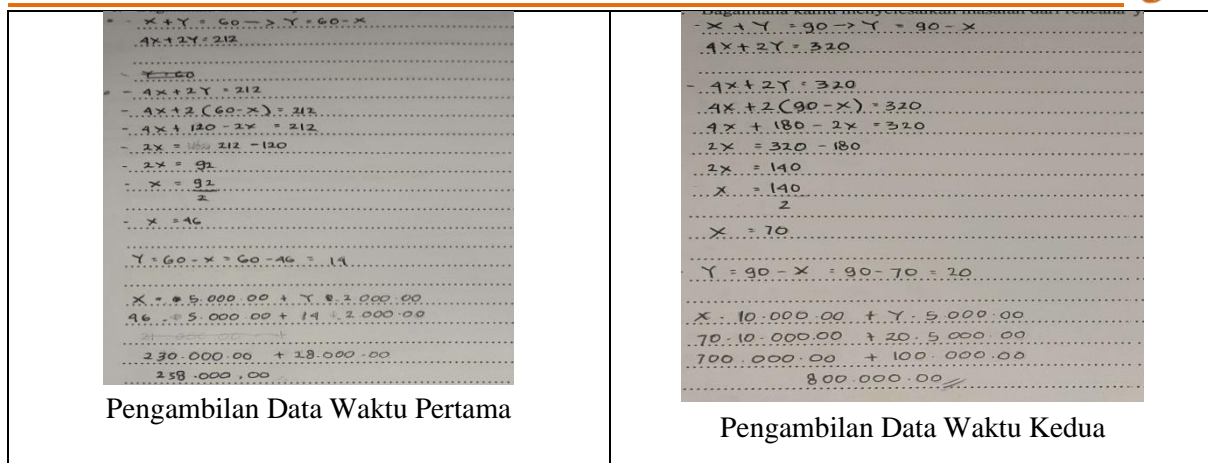 - X + Y = 60 —> Y = 60 - X
4X + 2Y = 212
Y = 60
- 4X + 2Y = 212
- 4X + 2 (60 - X) = 212
- 4X + 120 - 2X = 212
- 2X = 212 - 120
- 2X = 92
- X = 92
2
- X = 46
Y = 60 - X = 60 - 46 = 14
X . 5.000.00 + Y . 2.000.00
46 . 5.000.00 + 14 . 2.000.00
230.000.00 + 28.000.00
258.000,00
Pengambilan Data Waktu Pertama
- X + Y = 90 -> Y = 90 - X
4X + 2Y = 320
- 4X + 2Y = 320
4X + 2(90 - X) = 320
4X + 180 - 2X = 320
2X = 320 - 180
2X = 140
X = 140
2
X = 70
Y = 90 - X = 90 - 70 = 20
X . 10.000.00 + Y . 5.000.00
70 . 10.000.00 + 20 . 5.000.00
700.000.00 + 100.000.00
800.000.00
Pengambilan Data Waktu Kedua